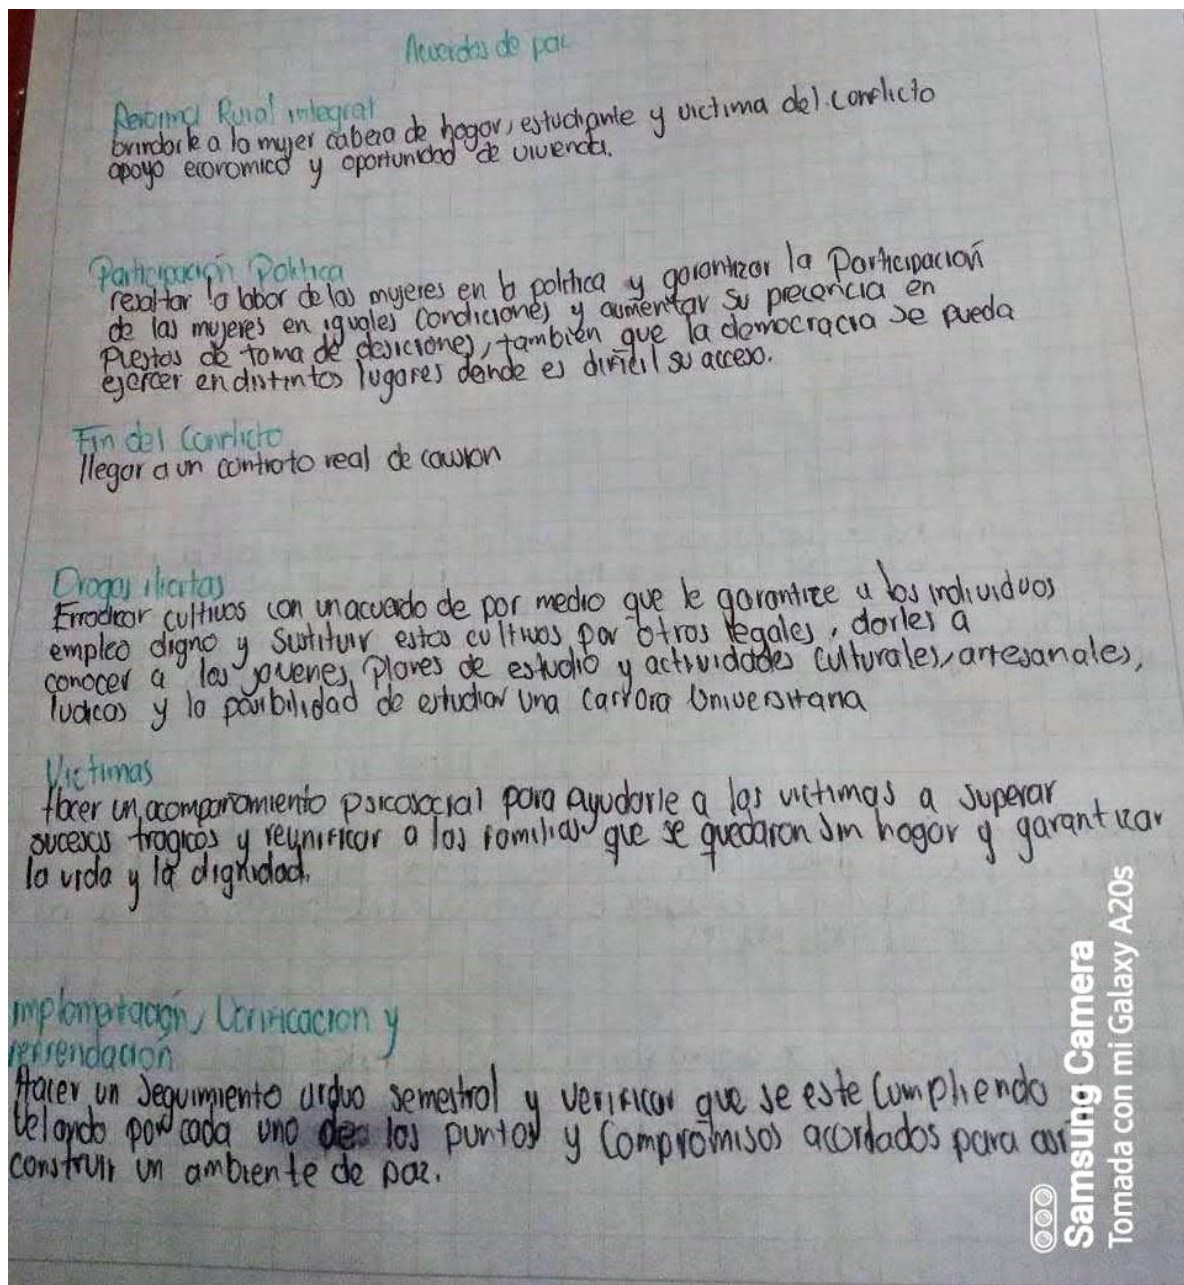 Acuerdos de paz
Reforma Rural integral
brindarle a la mujer cabeza de hogar, estudiante y victima del conflicto
apoyo economico y oportunidad de vivienda.
Participación Politica
resaltar la labor de las mujeres en la politica y garantizar la Participación
de las mujeres en iguales condiciones y aumentar su precencia en
Puestos de toma de desiciones, también que la democracia se pueda
ejercer en distintos lugares donde es dificil su acceso.
Fin del Conflicto
llegar a un contrato real de
Drogas ilicitas
Erradicar cultivos con un acuerdo de por medio que le garantize a los individuos
empleo digno y sustituir estos cultivos por otros legales, darles a
conocer a los jovenes, Planes de estudio y actividades culturales, artesanales,
ludicos y la posibilidad de estudiar una carrera Universitaria
Victimas
Hacer un acompañamiento psicosocial para ayudarle a las victimas a superar
sucesos tragicos y reunificar a las familias que se quedaron sin hogar y garantizar
la vida y la dignidad.
implementación, Verificacion y
refrendación
Hacer un seguimiento arduo semestral y verificar que se este Cumpliendo
Velando por cada uno de los puntos y Compromisos acordados para asi
construir un ambiente de paz.
Samsung Camera
Tomada con mi Galaxy A20s